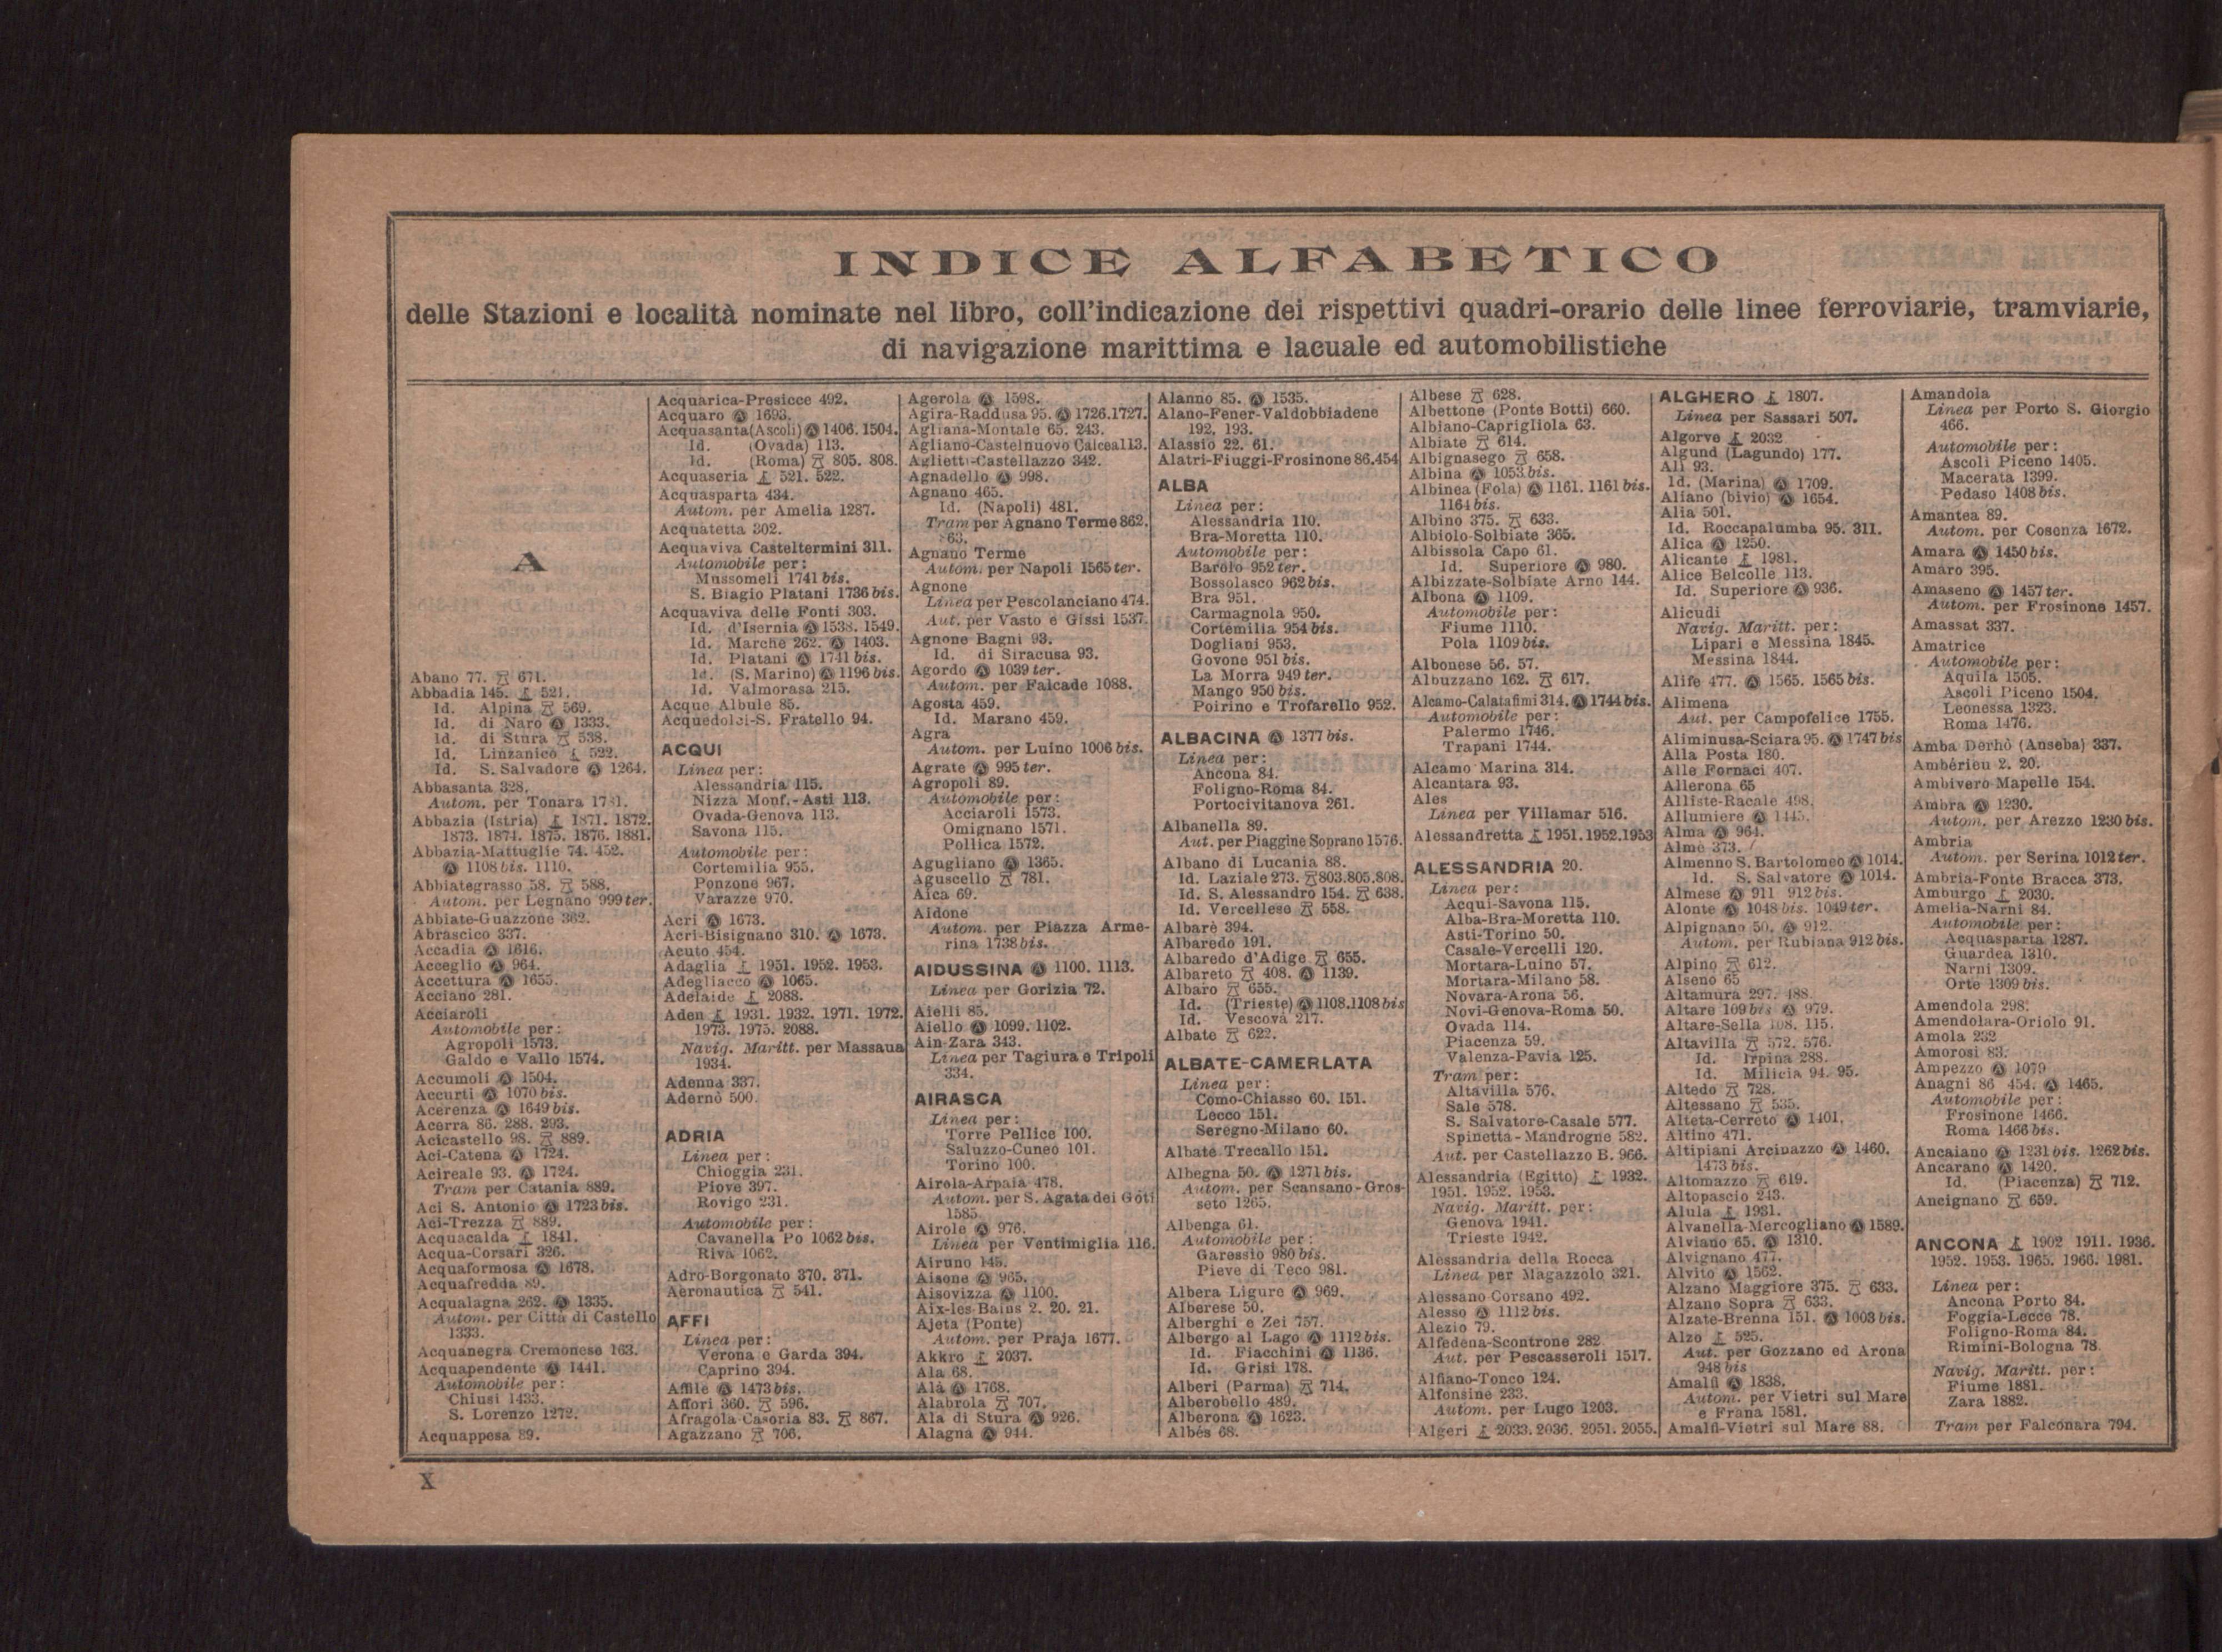 INDICE ALFABETICO
delle Stazioni e località nominate nel libro, coll'indicazione dei rispettivi quadri-orario delle linee ferroviarie, tramviarie,
di navigazione marittima e lacuale ed automobilistiche
A
Abano 77. 671.
Abbadia 145. 521.
Id. Alpina 569.
Id. di Naro 1333.
Id. di Stura 538.
Id. Linzanico 522.
Id. S. Salvadore 1264.
Abbasanta 328.
Autom. per Tonara
Abbazia (Istria) 1871. 1872.
1873. 1874. 1875. 1876. 1881.
Abbazia-Mattuglie 74. 452.
1108 bis. 1110.
Abbiategrasso 58. 588.
Autom. per Legnano 999 ter.
Abbiate-Guazzone 362.
Abrascico 337.
Accadia 1616.
Acceglio 964.
Accettura 1655.
Acciano 281.
Acciaroli
Automobile per:
Agropoli 1573.
Galdo e Vallo 1574.
Accumoli 1504.
Accurti 1070 bis.
Acerenza 1649 bis.
Acerra 86. 288. 293.
Acicastello 98. 889.
Aci-Catena 1724.
Acireale 93. 1724.
Tram per Catania 889.
Aci S. Antonio 1723 bis.
Aci-Trezza 889.
Acquacalda 1841.
Acqua-Corsari 326.
Acquaformosa 1678.
Acquafredda 89.
Acqualagna 262. 1335.
Autom. per Città di Castello
1333.
Acquanegra Cremonese 163.
Acquapendente 1441.
Automobile per:
Chiusi 1433.
S. Lorenzo 1272.
Acquappesa 89.
Acquarica-Presicce 492.
Acquaro 1693.
Acquasanta (Ascoli) 1406. 1504.
Id. (Ovada) 113.
Id. (Roma) 805. 808.
Acquaseria 521. 522.
Acquasparta 434.
Autom. per Amelia 1287.
Acquatetta 302.
Acquaviva Casteltermini 311.
Automobile per:
Mussomeli 1741 bis.
S. Biagio Platani 1736 bis.
Acquaviva delle Fonti 303.
Id. d'Isernia 1538. 1549.
Id. Marche 262. 1403.
Id. Platani 1741 bis.
Id. (S. Marino) 1196 bis.
Id. Valmorasa 215.
Acque Albule 85.
Acquedolci-S. Fratello 94.
ACQUI
Linea per:
Alessandria 115.
Nizza Monf.-Asti 113.
Ovada-Genova 113.
Savona 115.
Automobile per:
Cortemilia 955.
Ponzone 967.
Varazze 970.
Acri 1673.
Acri-Bisignano 310. 1673.
Acuto 454.
Adaglia 1951. 1952. 1953.
Adegliacco 1065.
Adelaide 2088.
Aden 1931. 1932. 1971. 1972.
1973. 1975. 2088.
Navig. Maritt. per Massaua
1934.
Adenna 337.
Adernò 500.
ADRIA
Linea per:
Chioggia 231.
Piove 397.
Rovigo 231.
Automobile per:
Cavanella Po 1062 bis.
Riva 1062.
Adro-Borgonato 370. 371.
Aeronautica 541.
AFFI
Linea per:
Verona e Garda 394.
Caprino 394.
Affile 1473 bis.
Affori 360. 596.
Afragola-Casoria 83. 867.
Agazzano 706.
Agerola 1598.
Agira-Raddusa 95. 1726.1727.
Agliana-Montale 65. 243.
Agliano-Castelnuovo Calcea113.
Aglietti-Castellazzo 342.
Agnadello 998.
Agnano 465.
Id. (Napoli) 481.
Tram per Agnano Terme 862.
863.
Agnano Terme
Autom. per Napoli 1565 ter.
Agnone
Linea per Pescolanciano 474.
Aut. per Vasto e Gissi 1537.
Agnone Bagni 93.
Id. di Siracusa 93.
Agordo 1039 ter.
Autom. per Falcade 1088.
Agosta 459.
Id. Marano 459.
Agra
Autom. per Luino 1006 bis.
Agrate 995 ter.
Agropoli 89.
Automobile per:
Acciaroli 1573.
Omignano 1571.
Pollica 1572.
Agugliano 1365.
Aguscello 781.
Aica 69.
Aidone
Autom. per Piazza Arme-
rina 1738 bis.
AIDUSSINA 1100. 1113.
Linea per Gorizia 72.
Aielli 85.
Aiello 1099. 1102.
Ain-Zara 343.
Linea per Tagiura e Tripoli
334.
AIRASCA
Linea per:
Torre Pellice 100.
Saluzzo-Cuneo 101.
Torino 100.
Airola-Arpaia 478.
Autom. per S. Agata dei Goti
1585.
Airole 976.
Linea per Ventimiglia 116.
Airuno 145.
Aisone 965.
Aisovizza 1100.
Aix-les-Bains 2. 20. 21.
Ajeta (Ponte)
Autom. per Praja 1677.
Akkro 2037.
Ala 68.
Alà 1768.
Alabrola 707.
Ala di Stura 926.
Alagna 944.
Alanno 85. 1535.
Alano-Fener-Valdobbiadene
192. 193.
Alassio 22. 61.
Alatri-Fiuggi-Frosinone 86.454
ALBA
Linea per:
Alessandria 110.
Bra-Moretta 110.
Automobile per:
Barolo 952 ter.
Bossolasco 962 bis.
Bra 951.
Carmagnola 950.
Cortemilia 954 bis.
Dogliani 953.
Govone 951 bis.
La Morra 949 ter.
Mango 950 bis.
Poirino e Trofarello 952.
ALBACINA 1377 bis.
Linea per:
Ancona 84.
Foligno-Roma 84.
Portocivitanova 261.
Albanella 89.
Aut. per Piaggine Soprano 1576.
Albano di Lucania 88.
Id. Laziale 273. 803.805.808.
Id. S. Alessandro 154. 638.
Id. Vercellese 558.
Albarè 394.
Albaredo 191.
Albaredo d'Adige 655.
Albareto 408. 1139.
Albaro 655.
Id. (Trieste) 1108.1108 bis
Id. Vescovà 217.
Albate 622.
ALBATE-CAMERLATA
Linea per:
Como-Chiasso 60. 151.
Lecco 151.
Seregno-Milano 60.
Albate Trecallo 151.
Albegna 50. 1271 bis.
Autom. per Scansano-Gros-
seto 1265.
Albenga 61.
Automobile per:
Garessio 980 bis.
Pieve di Teco 981.
Albera Ligure 969.
Alberese 50.
Alberghi e Zei 757.
Albergo al Lago 1112 bis.
Id. Fiacchini 1136.
Id. Grisi 178.
Alberi (Parma) 714.
Alberobello 489.
Alberona 1623.
Albés 68.
Albese 628.
Albettone (Ponte Botti) 660.
Albiano-Caprigliola 63.
Albiate 614.
Albignasego 658.
Albina 1053 bis.
Albinea (Fola) 1161. 1161 bis.
1164 bis.
Albino 375. 633.
Albiolo-Solbiate 365.
Albissola Capo 61.
Id. Superiore 980.
Albizzate-Solbiate Arno 144.
Albona 1109.
Automobile per:
Fiume 1110.
Pola 1109 bis.
Albonese 56. 57.
Albuzzano 162. 617.
Alcamo-Calatafimi 314. 1744 bis.
Automobile per:
Palermo 1746.
Trapani 1744.
Alcamo Marina 314.
Alcantara 93.
Ales
Linea per Villamar 516.
Alessandretta 1951.1952.1953
ALESSANDRIA 20.
Linea per:
Acqui-Savona 115.
Alba-Bra-Moretta 110.
Asti-Torino 50.
Casale-Vercelli 120.
Mortara-Luino 57.
Mortara-Milano 58.
Novara-Arona 56.
Novi-Genova-Roma 50.
Ovada 114.
Piacenza 59.
Valenza-Pavia 125.
Tram per:
Altavilla 576.
Sale 578.
S. Salvatore-Casale 577.
Spinetta-Mandrogne 582.
Aut. per Castellazzo B. 966.
Alessandria (Egitto) 1932.
1951. 1952. 1953.
Navig. Maritt. per:
Genova 1941.
Trieste 1942.
Alessandria della Rocca
Linea per Magazzolo 321.
Alessano-Corsano 492.
Alesso 1112 bis.
Alezio 79.
Alfedena-Scontrone 282
Aut. per Pescasseroli 1517.
Alfiano-Tonco 124.
Alfonsine 233.
Autom. per Lugo 1203.
Algeri 2033. 2036. 2051. 2055.
ALGHERO 1807.
Linea per Sassari 507.
Algorve 2032
Algund (Lagundo) 177.
Alì 93.
Id. (Marina) 1709.
Aliano (bivio) 1654.
Alia 501.
Id. Roccapalumba 95. 311.
Alica 1250.
Alicante 1981.
Alice Belcolle 113.
Id. Superiore 936.
Alicudi
Navig. Maritt. per:
Lipari e Messina 1845.
Messina 1844.
Alife 477. 1565. 1565 bis.
Alimena
Aut. per Campofelice 1755.
Aliminusa-Sciara 95. 1747 bis
Alla Posta 180.
Alle Fornaci 407.
Allerona 65
Alliste-Racale 498.
Allumiere 1445.
Alma 964.
Almè 373.
Almenno S. Bartolomeo 1014.
Id. S. Salvatore 1014.
Almese 911 912 bis.
Alonte 1048 bis. 1049 ter.
Alpignano 50. 912.
Autom. per Rubiana 912 bis.
Alpino 612.
Alseno 65
Altamura 297. 488.
Altare 109 bis 979.
Altare-Sella 108. 115.
Altavilla 572. 576.
Id. Irpina 288.
Id. Milicia 94. 95.
Altedo 728.
Altessano 535.
Alteta-Cerreto 1401.
Altino 471.
Altipiani Arcinazzo 1460.
1473 bis.
Altomazzo 619.
Altopascio 243.
Alula 1931.
Alvanella-Mercogliano 1589.
Alviano 65. 1310.
Alvignano 477.
Alvito 1562.
Alzano Maggiore 375. 633.
Alzano Sopra 633.
Alzate-Brenna 151. 1003 bis.
Alzo 525.
Aut. per Gozzano ed Arona
948 bis
Amalfi 1838.
Autom. per Vietri sul Mare
e Frana 1581.
Amalfi-Vietri sul Mare 88.
Amandola
Linea per Porto S. Giorgio
466.
Automobile per:
Ascoli Piceno 1405.
Macerata 1399.
Pedaso 1408 bis.
Amantea 89.
Autom. per Cosenza 1672.
Amara 1450 bis.
Amaro 395.
Amaseno 1457 ter.
Autom. per Frosinone 1457.
Amassat 337.
Amatrice
Automobile per:
Aquila 1505.
Ascoli Piceno 1504.
Leonessa 1323.
Roma 1476.
Amba Derhò (Anseba) 337.
Ambérieu 2. 20.
Ambivero Mapelle 154.
Ambra 1230.
Autom. per Arezzo 1230 bis.
Ambria
Autom. per Serina 1012 ter.
Ambria-Fonte Bracca 373.
Amburgo 2030.
Amelia-Narni 84.
Automobile per:
Acquasparta 1287.
Guardea 1310.
Narni 1309.
Orte 1309 bis.
Amendola 298.
Amendolara-Oriolo 91.
Amola 232
Amorosi 83.
Ampezzo 1079
Anagni 86 454. 1465.
Automobile per:
Frosinone 1466.
Roma 1466 bis.
Ancaiano 1231 bis. 1262 bis.
Ancarano 1420.
Id. (Piacenza) 712.
Ancignano 659.
ANCONA 1902 1911. 1936.
1952. 1953. 1965. 1966. 1981.
Linea per:
Ancona Porto 84.
Foggia-Lecce 78.
Foligno-Roma 84.
Rimini-Bologna 78
Navig. Maritt. per:
Fiume 1881.
Zara 1882.
Tram per Falconara 794.
X